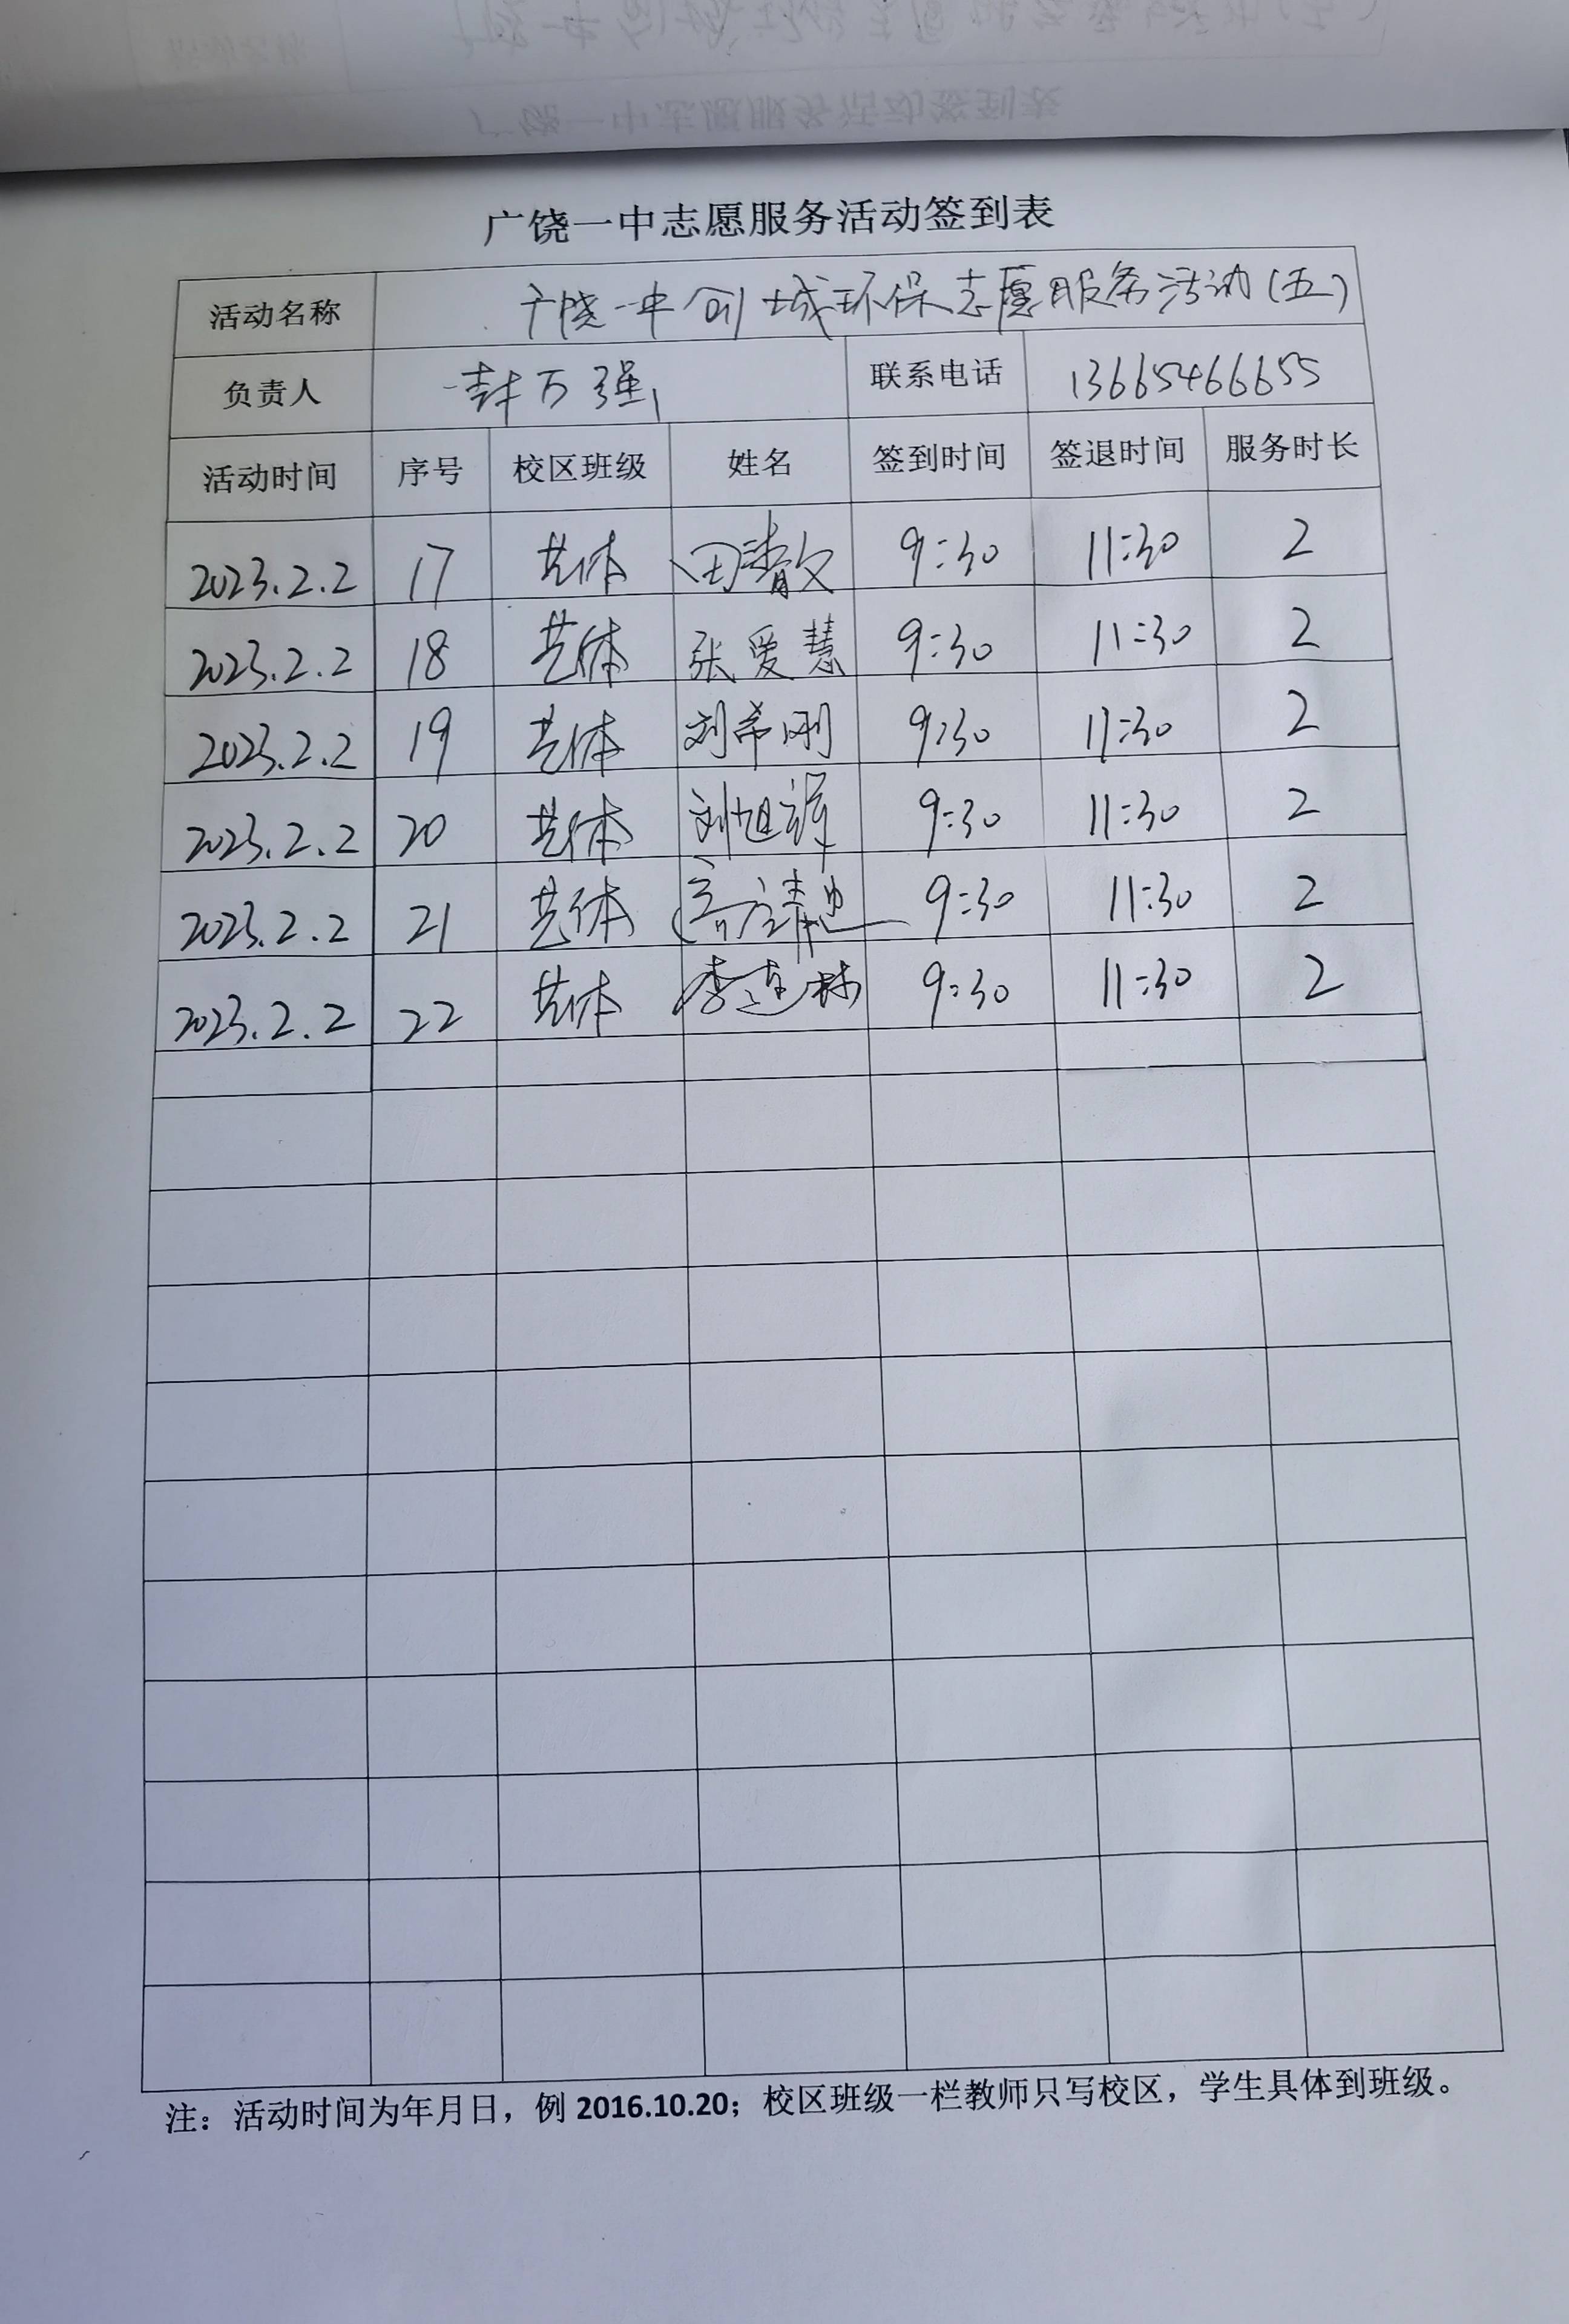 广饶一中志愿服务活动签到表
活动名称 广饶一中创城环保志愿服务活动(五)
负责人 封万强 联系电话 13665466655
活动时间 序号 校区班级 姓名 签到时间 签退时间 服务时长
2023.2.2 17 艺体 田清文 9:30 11:30 2
2023.2.2 18 艺体 张爱慧 9:30 11:30 2
2023.2.2 19 艺体 刘希刚 9:30 11:30 2
2023.2.2 20 艺体 刘旭 9:30 11:30 2
2023.2.2 21 艺体 9:30 11:30 2
2023.2.2 22 艺体 李连林 9:30 11:30 2
注：活动时间为年月日，例 2016.10.20；校区班级一栏教师只写校区，学生具体到班级。